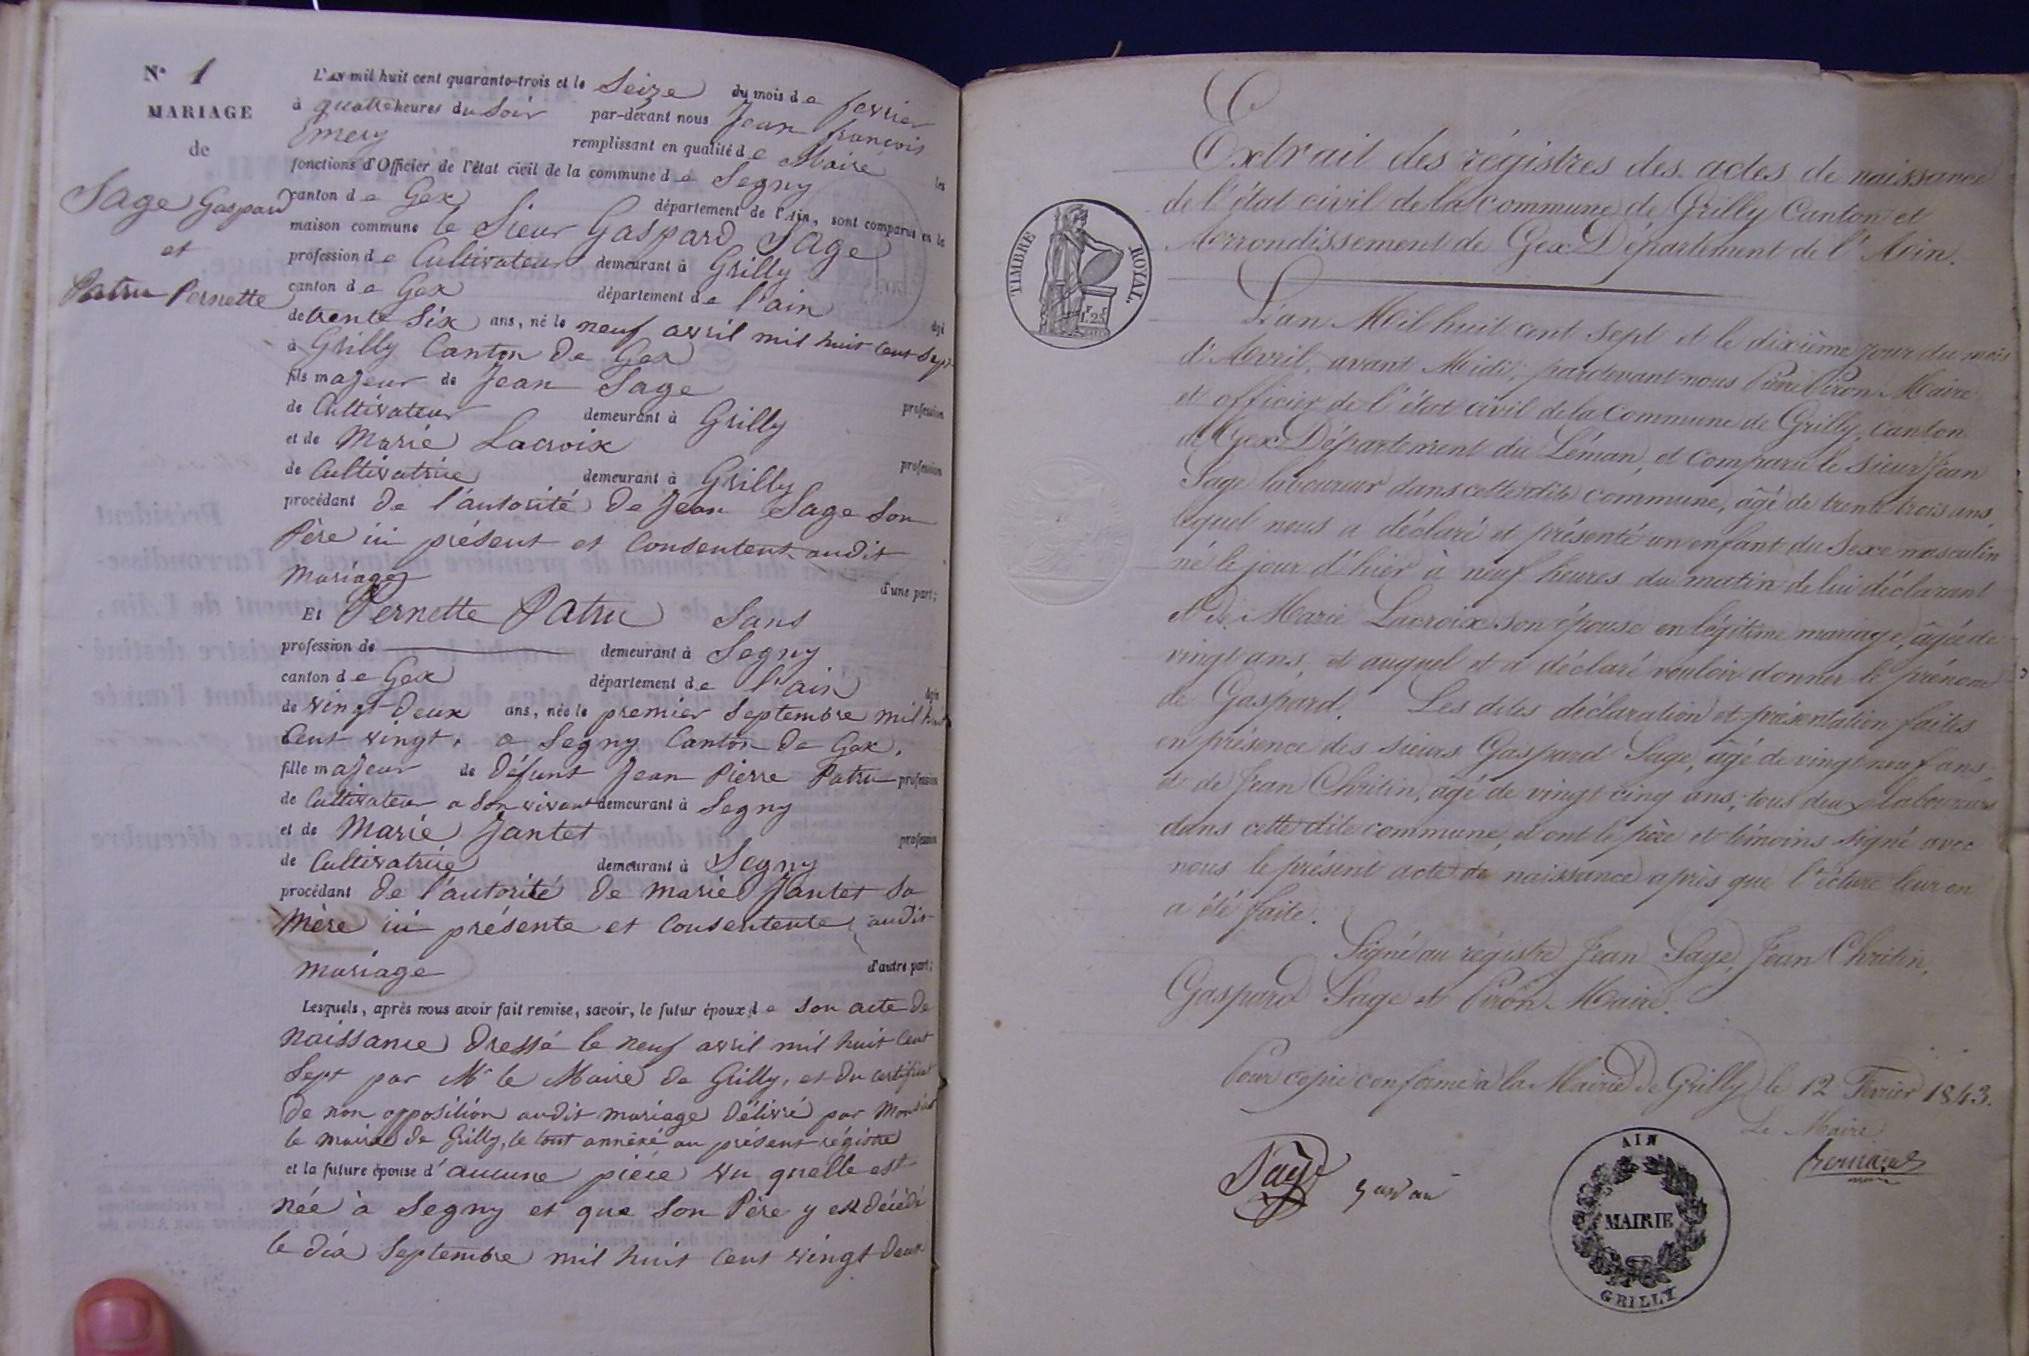 N° 1
MARIAGE
de
Sage Gaspard
et
Patru Pernette
L'AN mil huit cent quarante-trois et le Seize du mois de fevrier
à quatre heures du Soir par-devant nous Jean françois
Emery remplissant en qualité de Maire les
fonctions d'Officier de l'état civil de la commune de Segny
canton de Gex département de l'Ain, sont comparus en la
maison commune le Sieur Gaspard Sage
profession de Cultivateur demeurant à Grilly
canton de Gex département de l'ain âgé
de trente Six ans, né le neuf avril mil huit cent Sept
à Grilly Canton de Gex
fils majeur de Jean Sage profession
de Cultivateur demeurant à Grilly
et de Marie Lacroix profession
de Cultivatrice demeurant à Grilly
procédant de l'autorité de Jean Sage Son
Père ici présent et Consentent audit
mariage d'une part;
Et Pernette Patru Sans
profession de demeurant à Segny
canton de Gex département de l'ain âgée
de vingt-Deux ans, née le premier Septembre mil huit
Cent vingt, a Segny Canton de Gex,
fille majeur de Défunt Jean Pierre Patru profession
de Cultivateur a Son vivant demeurant à Segny
et de Marie Jantet profession
de Cultivatrice demeurant à Segny
procédant de l'autorité de marie Jantet Sa
Mère ici présente et Consentente audit
mariage d'autre part;
Lesquels, après nous avoir fait remise, savoir, le futur époux de Son acte De
naissance Dressé le neuf avril mil huit Cent
Sept par Mr le Maire de Grilly, et du certificat
De non opposition audit mariage Délivré par Monsieur
le maire de Grilly, le tout annéxé au présent régistre
et la future épouse d'aucune pièce vu quelle est
née à Segny et que Son Père y est décédé
le dix Septembre mil huit Cent vingt Deux
Extrait des régistres des actes de naissance
de l'état civil de la Commune de Grilly Canton et
Arrondissement de Gex Département de l'Ain.
TIMBRE ROYAL.
L'an Mil huit cent sept et le dixième jour du mois
d'Avril, avant Midi, pardevant nous Piron Maire
et officier de l'état civil de la commune de Grilly, canton
de Gex Département du Léman, et comparu le sieur Jean
Sage laboureur dans cette dite commune, âgé de trente trois ans,
lequel nous a déclaré et présenté un enfant du Sexe masculin
né le jour d'hier à neuf heures du matin de lui déclarant
et de Marie Lacroix son épouse en légitime mariage, âgée de
vingt ans, et auquel il a déclaré vouloir donner le prénom
de Gaspard. Les dites déclaration et présentation faites
en présence des sieurs Gaspard Sage, âgé de vingt neuf ans,
et de Jean Chritin, âgé de vingt cinq ans, tous deux laboureurs
dans cette dite commune, et ont le père et témoins signé avec
nous le présent acte de naissance après que l'ecture leur en
a été faite.
Signé au régistre Jean Sage, Jean Chritin,
Gaspard Sage et Piron Maire.
Pour copie conforme à la Mairie de Grilly le 12 Février 1843.
Le Maire
Sage
AIN
MAIRIE
GRILLY